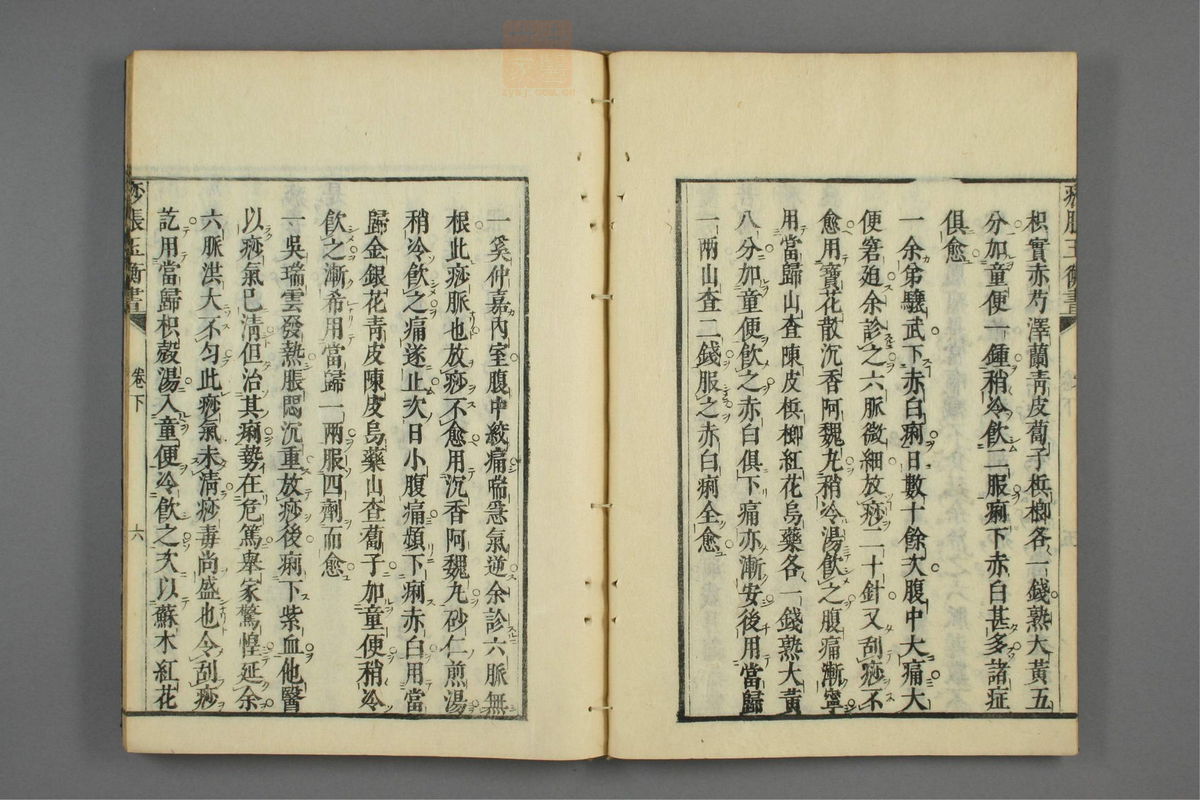 枳實赤芍澤蘭青皮蔔子梹榔各一錢熟大黃五
分加童便一鍾稍冷飲二服痢下赤白甚多諸症
俱愈
一余弟驥武下赤白痢日數十餘次腹中大痛大
便窘廹余診之六脈微細放痧二十針又刮痧不
愈用寶花散沉香阿魏丸稍冷湯飲之腹痛漸寧
用當歸山查陳皮梹榔紅花烏藥各一錢熟大黃
八分加童便飲之赤白俱下痛亦漸安後用當歸
一兩山查二錢服之赤白痢全愈
一奚仲嘉內室腹中絞痛喘急氣逆余診六脈無
根此痧脈也放痧不愈用沉香阿魏丸砂仁煎湯
稍冷飲之痛遂止次日小腹痛頻下痢赤白用當
歸金銀花青皮陳皮烏藥山查蔔子加童便稍冷
飲之漸希用當歸一兩服四劑而愈
一吳瑞雲發熱脹悶沉重放痧後痢下紫血他醫
以痧氣已清但治其痢勢在危篤舉家驚惶延余
六脈洪大不勻此痧氣未清痧毒尚盛也令刮痧
訖用當歸枳殼湯入童便冷飲之次以蘇木紅花
痧脹玉衡書
卷下
六